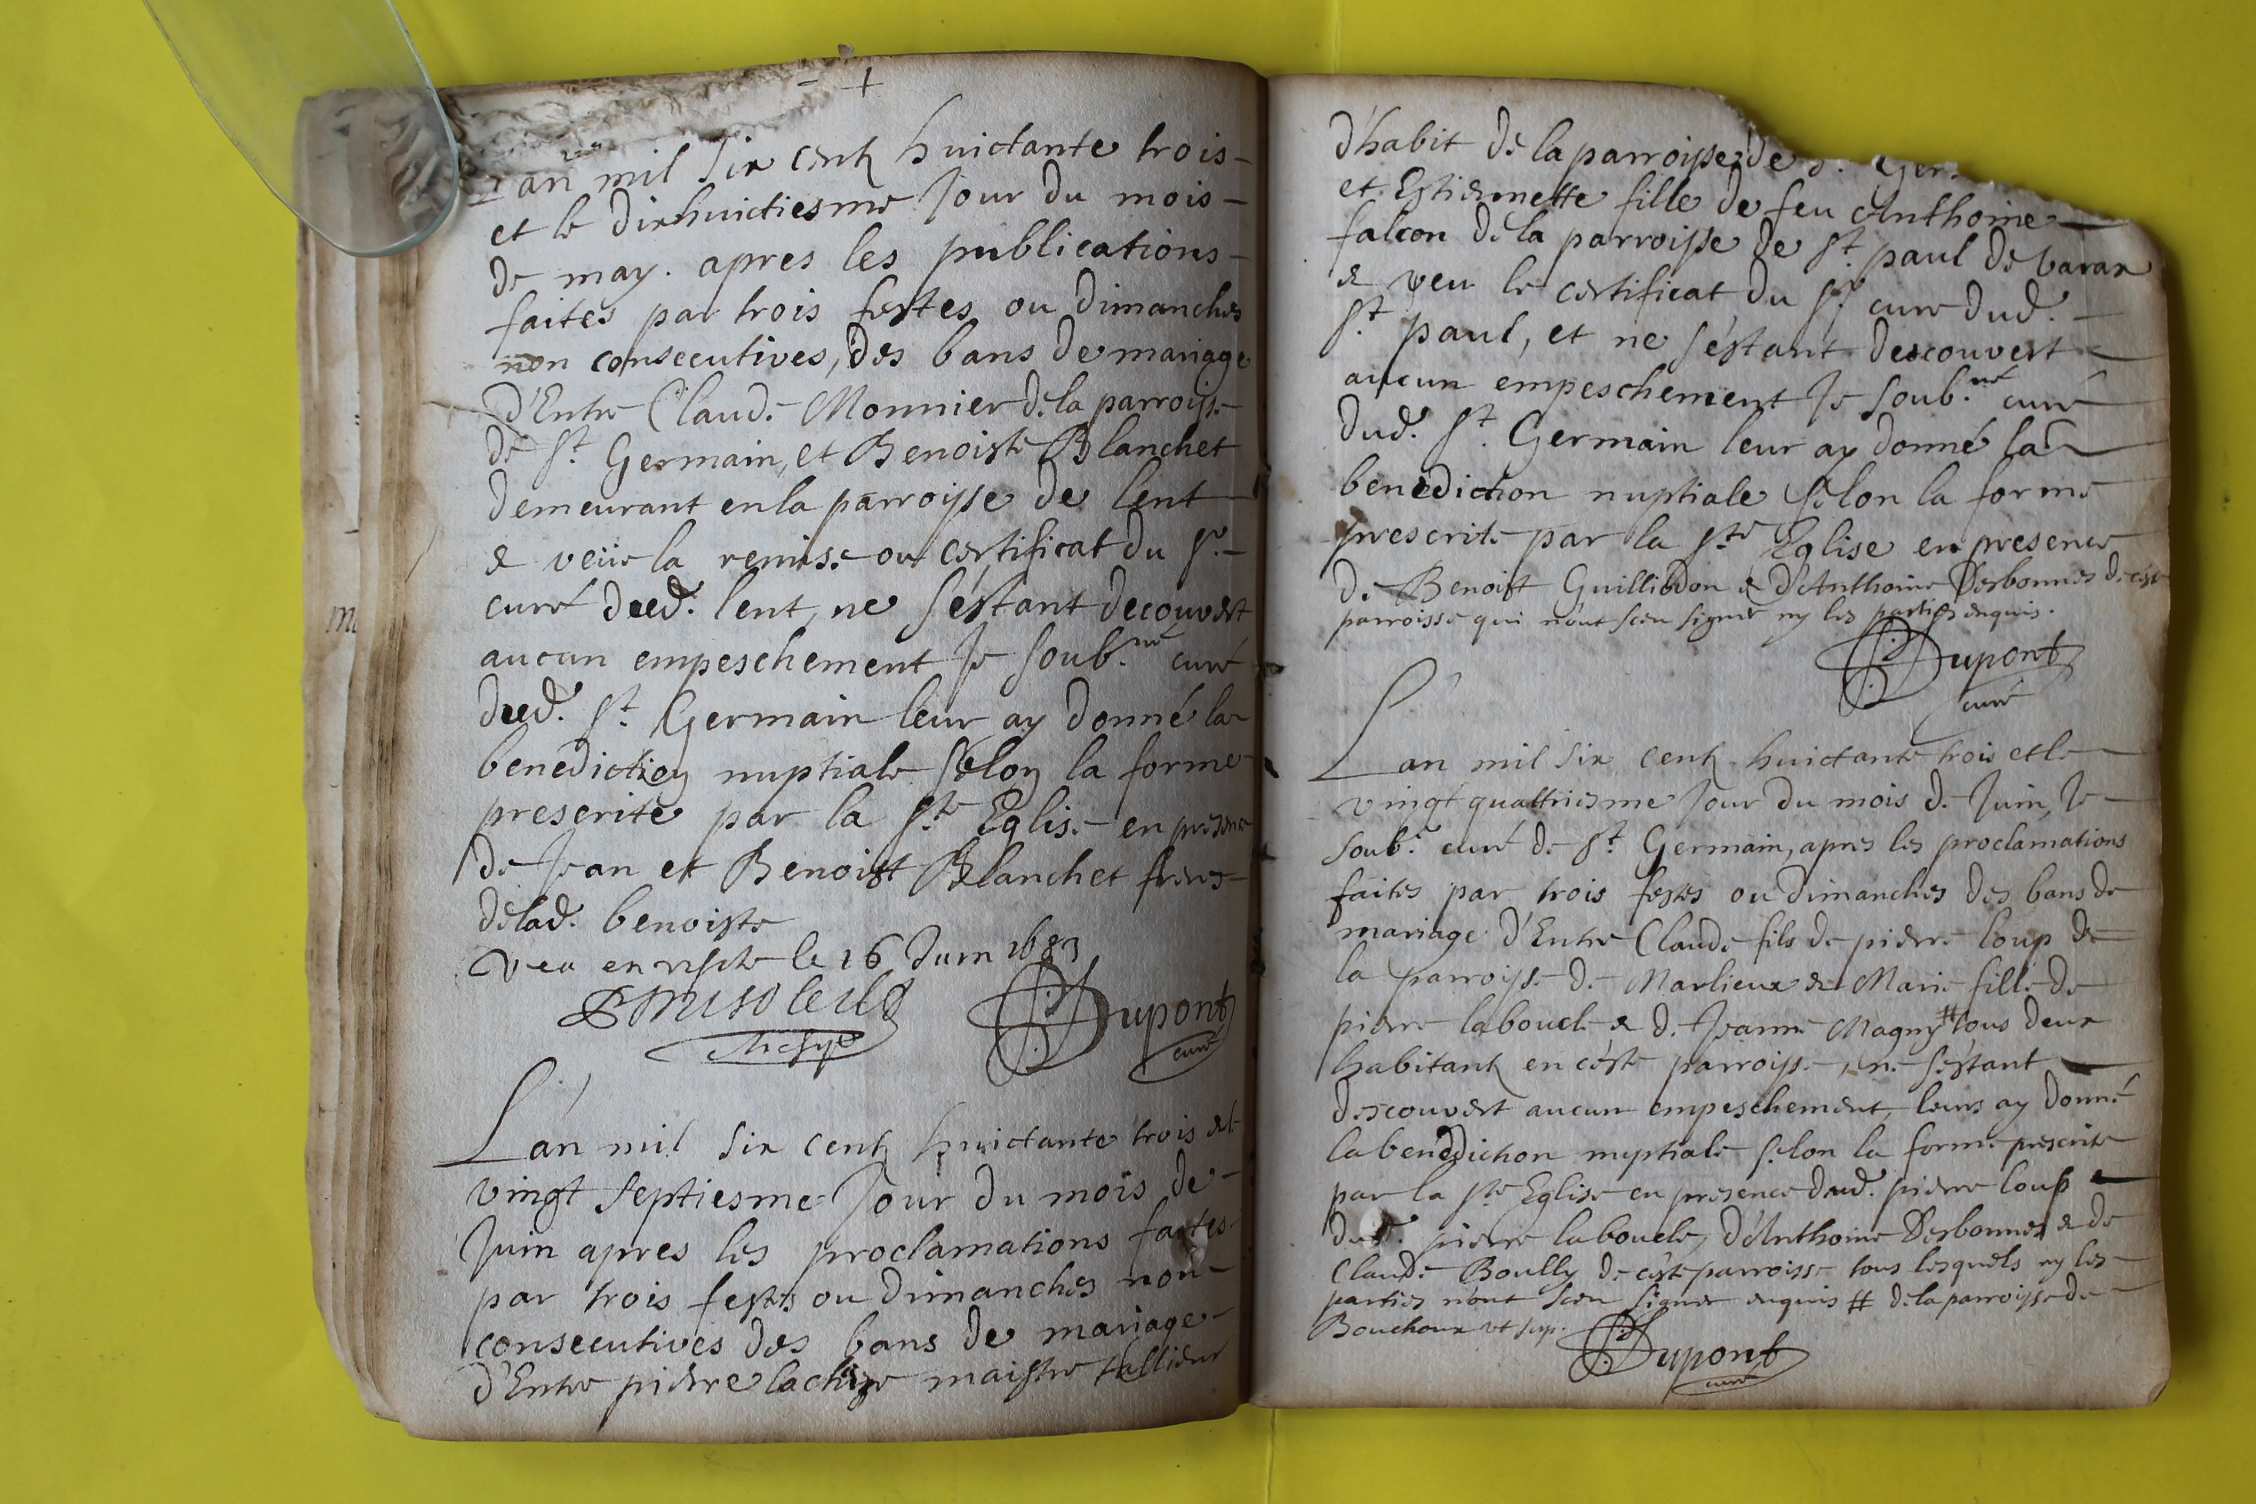 L'an mil six centz huictante trois
et le dixhuictiesme Jour du mois
de may. apres les publications
faites par trois festes ou dimanches
non consecutives, des bans de mariage
d'Entre Claude Monnier de la parroisse
de St. Germain, et Benoiste Blanchet
demeurant en la parroisse de lent
& veüe la remise ou certificat du Sr.
curé dud. lent, ne s'estant decouvert
aucun empeschement Je soub.né curé
dud. St. Germain leur ay donné la
benediction nuptiale selon la forme
prescrite par la Ste Eglise en presence
de Jean et Benoist Blanchet freres
de lad. benoiste
Veu en visite le 16 Juin 1683
Dupont
curé
L'an mil six centz huictante trois et
vingt septiesme Jour du mois de
Juin apres les proclamations faites
par trois festes ou dimanches non
consecutives des bans de mariage
d'Entre pierre maistre tallieur
d'habit de la parroisse de S. Ger
et Estiennette fille de feu Anthoine
falcon de la parroisse de St. paul de varax
& veu le certificat du Sr curé dud.
St. paul, et ne s'estant descouvert
aucun empeschement Je soub.né curé
dud. St. Germain leur ay donné la
benediction nuptiale selon la forme
prescrite par la Ste Eglise en presence
de Benoist Guilliodon & d'Anthoine Desbonnes de ceste
parroisse qui n'ont sceu signer ny les parties enquis.
Dupont
curé
L'an mil six centz huictante trois et le
vingt quattriesme Jour du mois de Juin, Je
soub. curé de St. Germain, apres les proclamations
faites par trois festes ou dimanches des bans de
mariage d'Entre Claude fils de pierre loup de
la parroisse de Marlieux & Marie fille de
pierre laboucle & de Jeanne Magny # tous deux
habitantz en ceste parroisse, ne s'estant
descouvert aucun empeschement, leurs ay donné
la benediction nuptiale selon la forme prescrite
par la Ste Eglise en presence dud. pierre loup
dud. pierre laboucle, d'Anthoine Desbonnes & de
Claude Boully de ceste parroisse tous lesquels ny les
parties n'ont sceu signer enquis # de la parroisse de
Bouchoux ut sup.
Dupont
curé